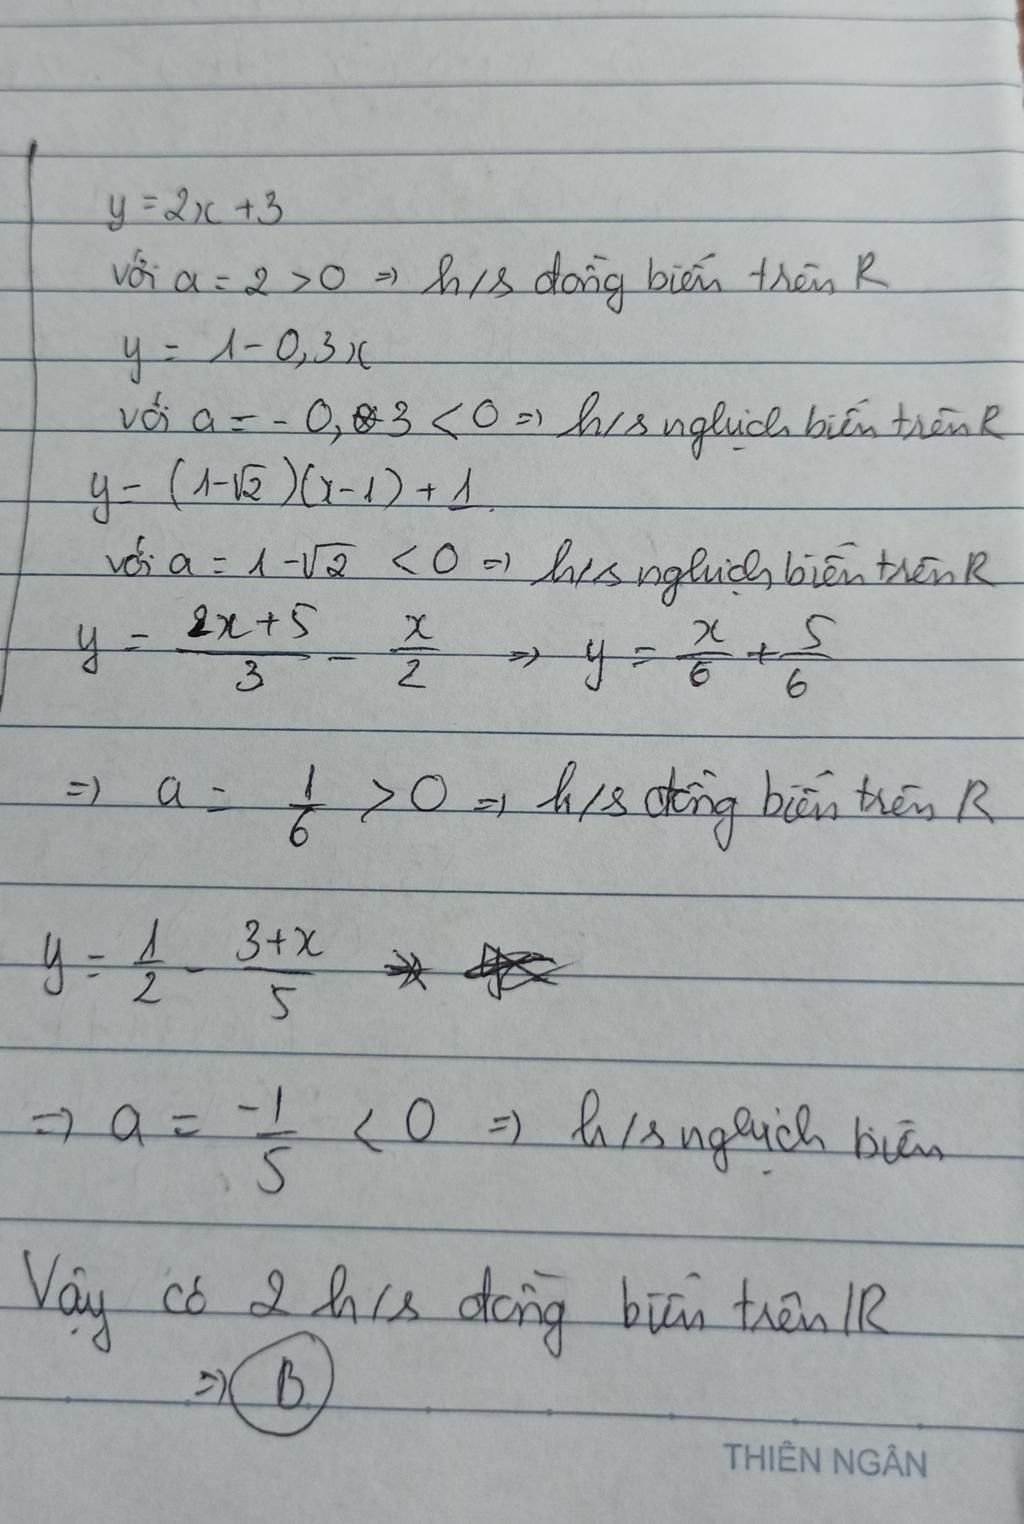 y = 2x + 3
với a = 2 > 0 => h/s đồng biến trên R
y = 1 - 0,3x
với a = - 0,3 < 0 => h/s nghịch biến trên R
y = (1-√2)(x-1) + 1
với a = 1-√2 < 0 => h/s nghịch biến trên R
y = (2x+5)/3 - x/2 => y = x/6 + 5/6
=> a = 1/6 > 0 => h/s đồng biến trên R
y = 1/2 - (3+x)/5
=> a = -1/5 < 0 => h/s nghịch biến
Vậy có 2 h/s đồng biến trên R
=> B
THIÊN NGÂN